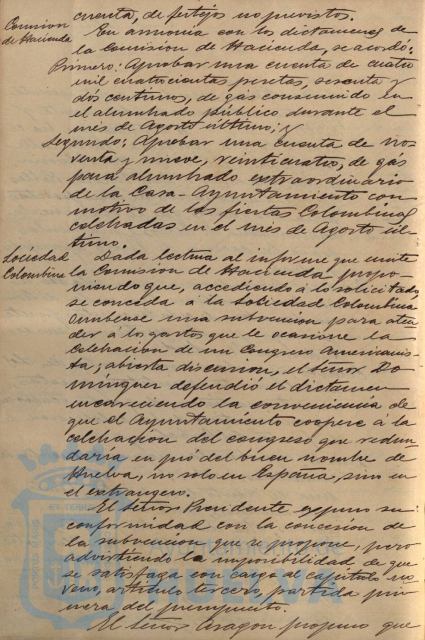 cuenta, de festejos no previstos.
Comision de Hacienda
En armonia con los dictamenes de
la Comision de Hacienda, se acordó:
Primero: Aprobar una cuenta de cuatro
mil cuatrocientas pesetas, sesenta y
dós centimos, de gás consumido en
el alumbrado público durante el
mes de Agosto último; y
Segundo: Aprobar una cuenta de no-
venta y nueve, veinticuatro, de gas
para alumbrado extraordinario
de la Casa-Ayuntamiento con
motivo de las fiestas Colombinas
celebradas en el mes de Agosto úl-
timo.
Sociedad Colombina
Dada lectura al informe que emite
la Comision de Hacienda propo-
niendo que, accediendo á lo solicitado,
se conceda á la Sociedad Colombina
Onubense una subvencion para aten-
der á los gastos que le ocasione la
celebracion de un Congreso Americanis-
ta; abierta discusion, el Señor Do-
minguez defendió el dictamen
encareciendo la conveniencia de
que el Ayuntamiento coopere á la
celebracion del congreso que redun-
daria en pró del buen nombre de
Huelva, no solo en España, sino en
el extrangero.
El Señor Presidente expuso su
conformidad con la concesion de
la subvencion que se propone, pero
advirtiendo la imposibilidad de que
se satisfaga con cargo al capitulo no-
veno, articulo tercero, partida pri-
mera del presupuesto.
El Señor Aragon propuso que